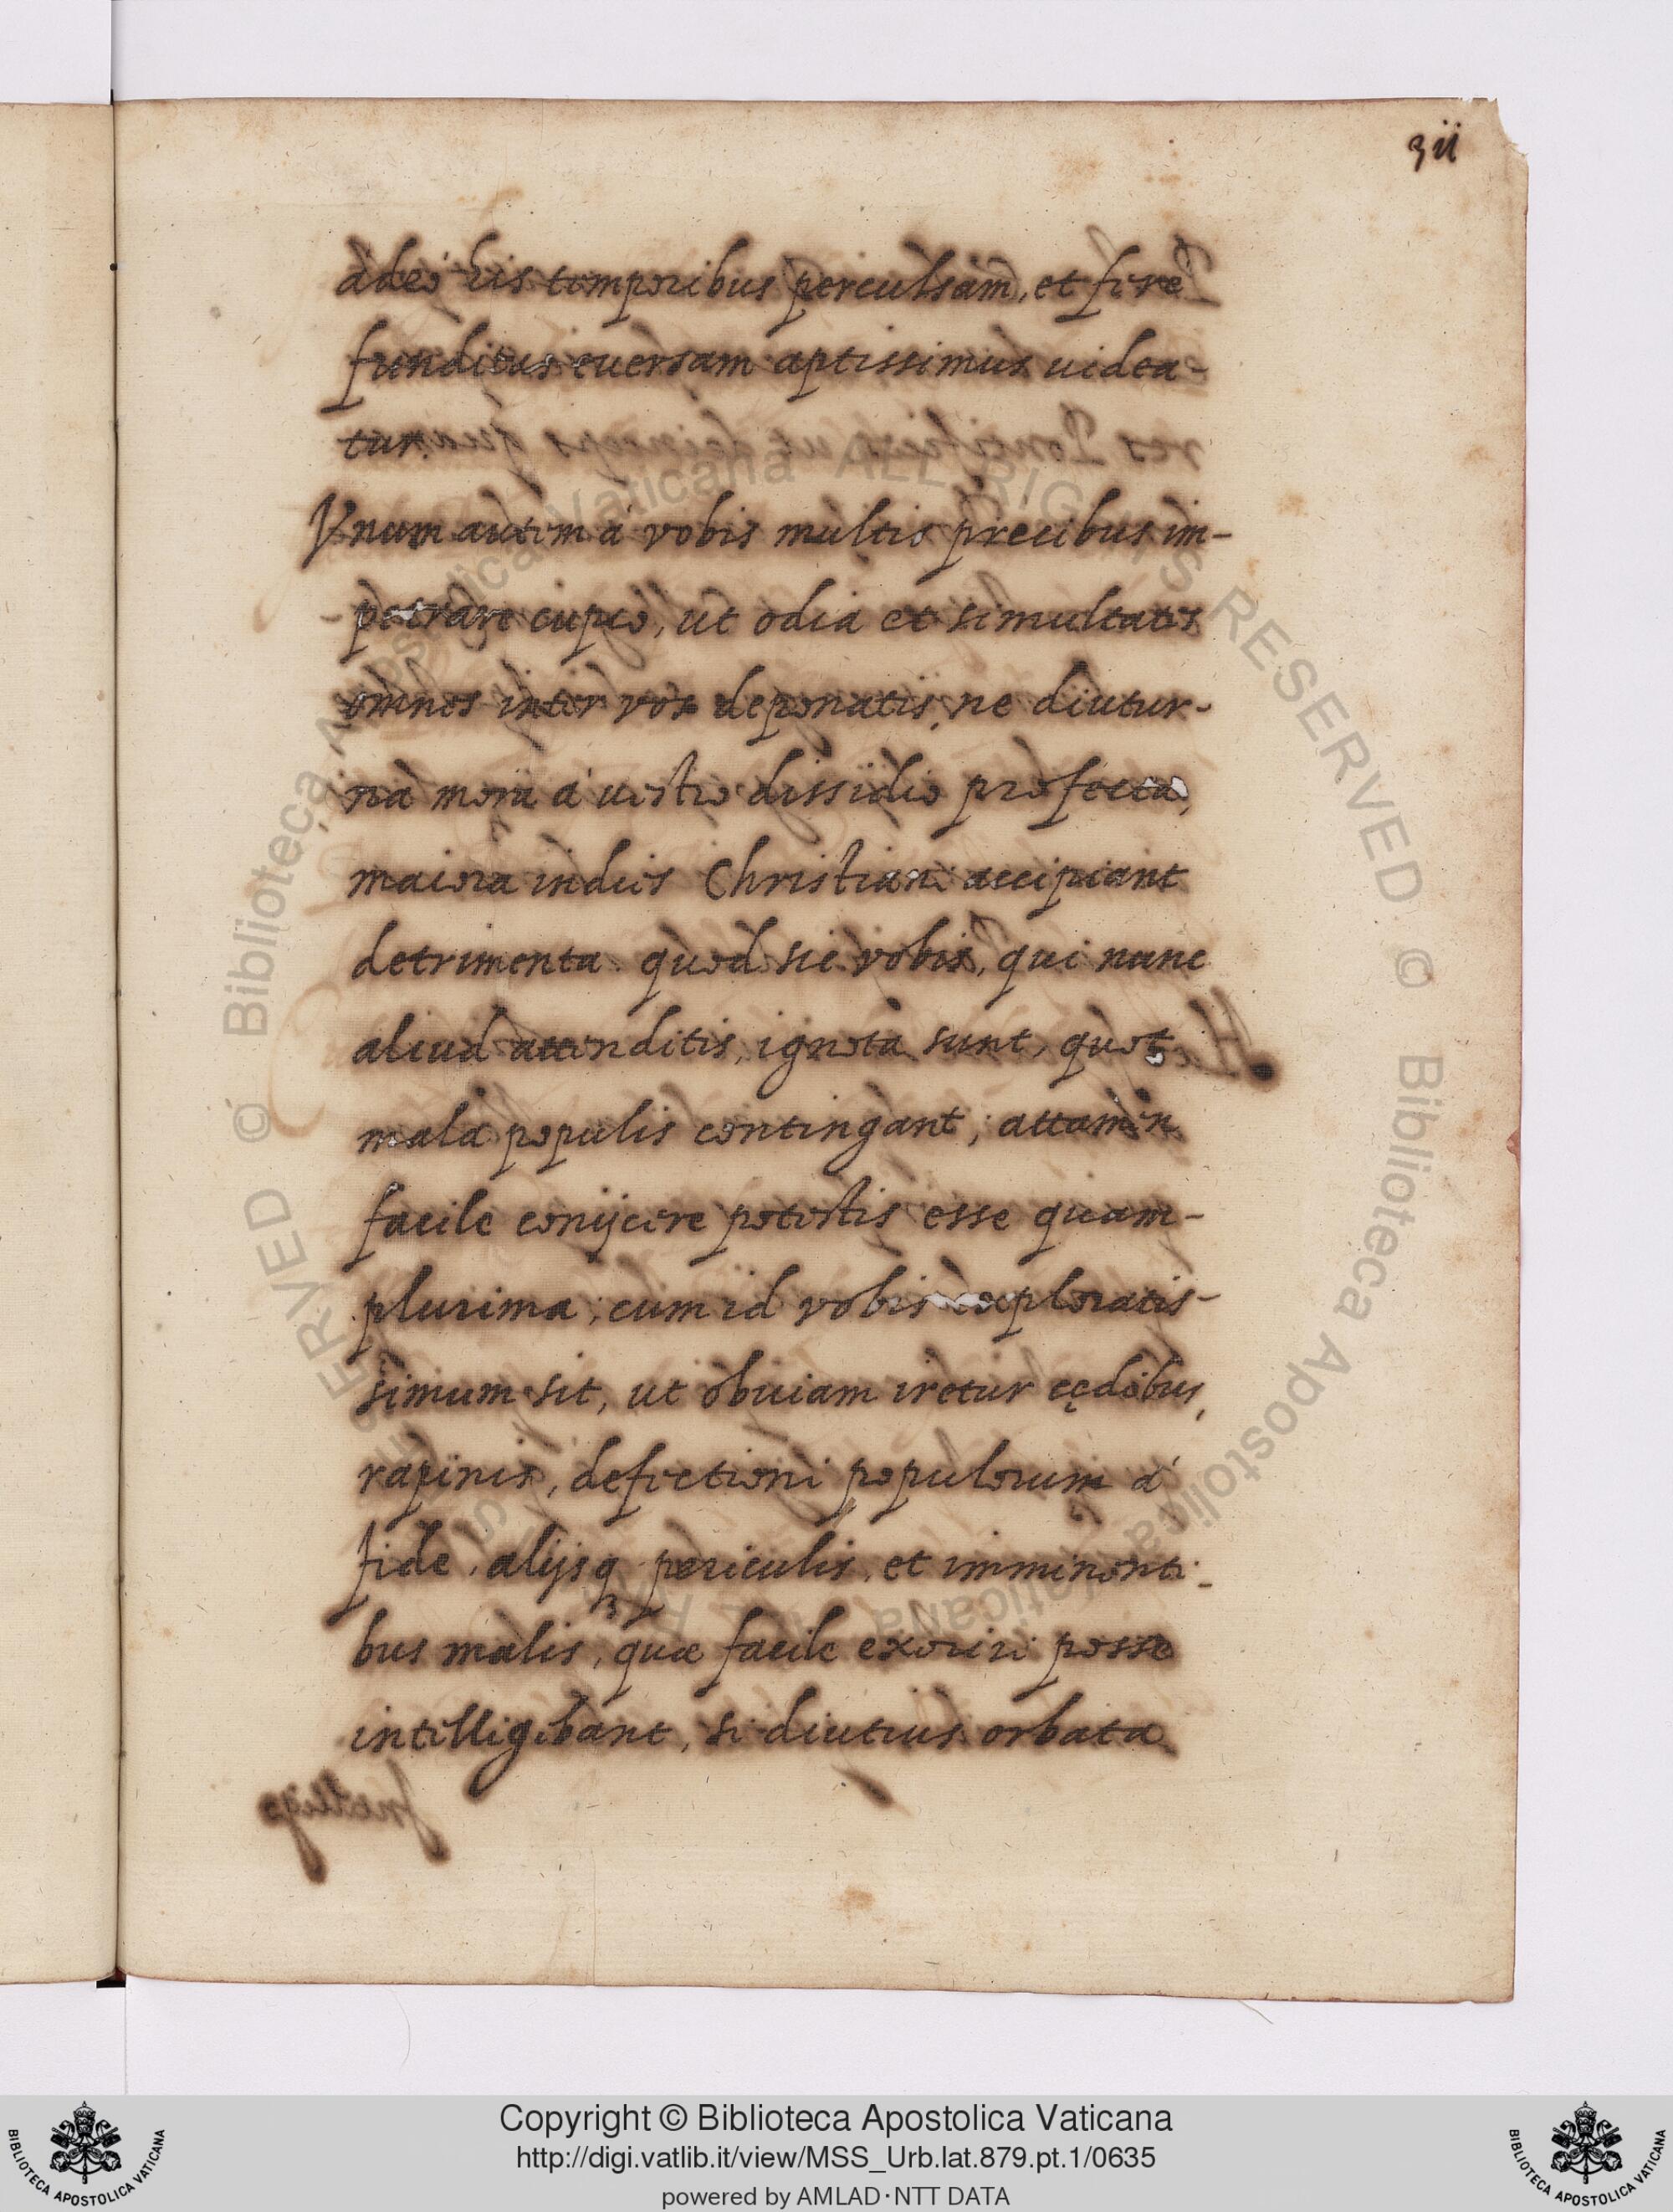 311
adeò his temporibus perculsam, et ferè
funditus euersam aptissimus uidea-
tur.
Vnum autem à vobis multis precibus im-
-petrare cupio, ut odia et simultates
omnes inter vos deponatis, ne diutur-
na mora à uestro dissidio profecta,
maiora indies Christiani accipiant
detrimenta. quod si è vobis, qui nunc
aliud attenditis, ignota sunt, quot
mala populis contingant; attamen
facile conijcere potestis esse quam-
plurima; cum id vobis exploratis-
simum sit, ut obuiam iretur cędibus,
rapinis, defectioni populorum à
fide, alijsq3 periculis, et imminenti-
bus malis, quæ facile exoriri posse
intelligebant, si diutius orbata
Biblioteca Apostolica Vaticana ALL RIGHTS RESERVED ©
Biblioteca Apostolica Vaticana
Copyright © Biblioteca Apostolica Vaticana
http://digi.vatlib.it/view/MSS_Urb.lat.879.pt.1/0635
powered by AMLAD·NTT DATA
BIBLIOTECA APOSTOLICA VATICANA
BIBLIOTECA APOSTOLICA VATICANA